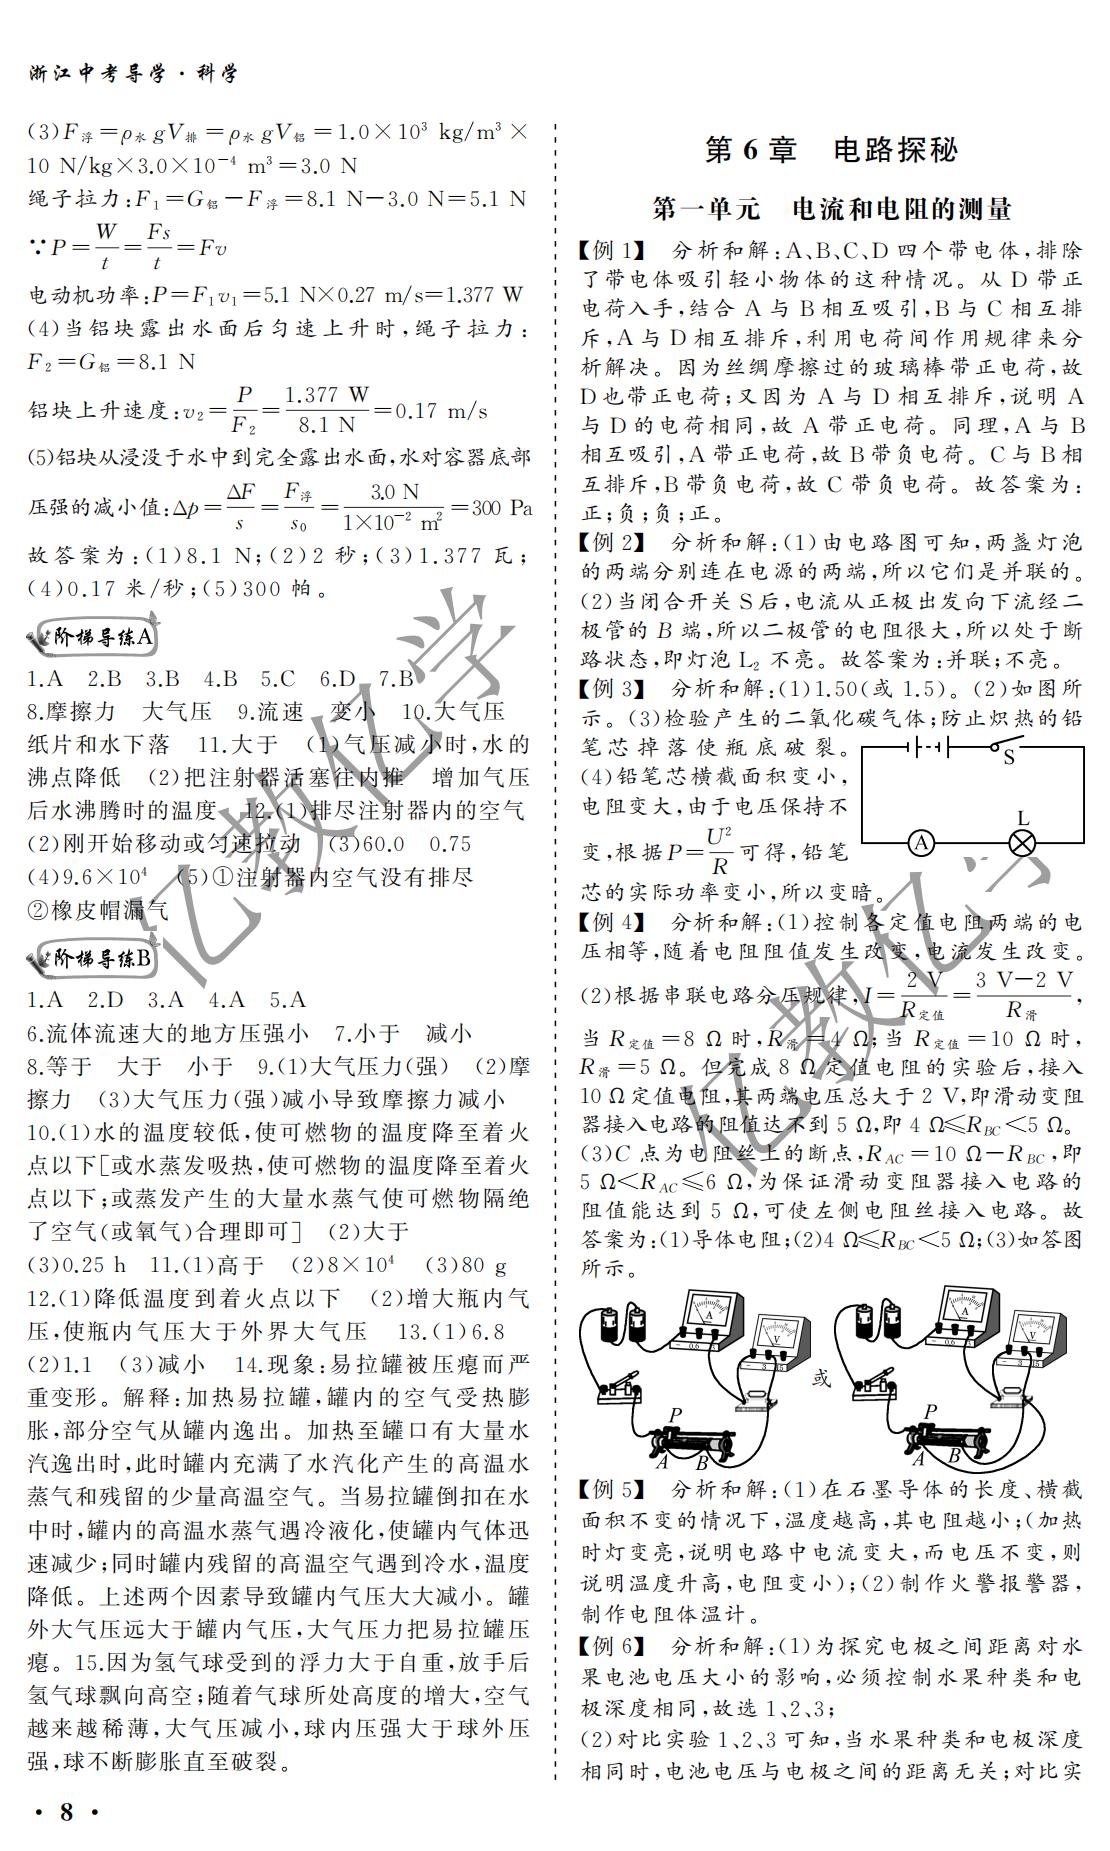 浙江中考导学·科学
(3)F浮=ρ水gV排=ρ水gV铝=1.0×10³ kg/m³×
10 N/kg×3.0×10⁻⁴ m³=3.0 N
绳子拉力:F₁=G铝-F浮=8.1 N-3.0 N=5.1 N
∵P=W/t=Fs/t=Fv
电动机功率:P=F₁v₁=5.1 N×0.27 m/s=1.377 W
(4)当铝块露出水面后匀速上升时,绳子拉力:
F₂=G铝=8.1 N
铝块上升速度:v₂=P/F₂=1.377 W/8.1 N=0.17 m/s
(5)铝块从浸没于水中到完全露出水面,水对容器底部
压强的减小值:Δp=ΔF/s=F浮/s₀=3.0 N/1×10⁻² m²=300 Pa
故答案为:(1)8.1 N;(2)2 秒;(3)1.377 瓦;
(4)0.17 米/秒;(5)300 帕。
阶梯导练A
1.A 2.B 3.B 4.B 5.C 6.D 7.B
8.摩擦力 大气压 9.流速 变小 10.大气压
纸片和水下落 11.大于 (1)气压减小时,水的
沸点降低 (2)把注射器活塞往内推 增加气压
后水沸腾时的温度 12.(1)排尽注射器内的空气
(2)刚开始移动或匀速拉动 (3)60.0 0.75
(4)9.6×10⁴ (5)①注射器内空气没有排尽
②橡皮帽漏气
阶梯导练B
1.A 2.D 3.A 4.A 5.A
6.流体流速大的地方压强小 7.小于 减小
8.等于 大于 小于 9.(1)大气压力(强) (2)摩
擦力 (3)大气压力(强)减小导致摩擦力减小
10.(1)水的温度较低,使可燃物的温度降至着火
点以下[或水蒸发吸热,使可燃物的温度降至着火
点以下;或蒸发产生的大量水蒸气使可燃物隔绝
了空气(或氧气)合理即可] (2)大于
(3)0.25 h 11.(1)高于 (2)8×10⁴ (3)80 g
12.(1)降低温度到着火点以下 (2)增大瓶内气
压,使瓶内气压大于外界大气压 13.(1)6.8
(2)1.1 (3)减小 14.现象:易拉罐被压瘪而严
重变形。解释:加热易拉罐,罐内的空气受热膨
胀,部分空气从罐内逸出。加热至罐口有大量水
汽逸出时,此时罐内充满了水汽化产生的高温水
蒸气和残留的少量高温空气。当易拉罐倒扣在水
中时,罐内的高温水蒸气遇冷液化,使罐内气体迅
速减少;同时罐内残留的高温空气遇到冷水,温度
降低。上述两个因素导致罐内气压大大减小。罐
外大气压远大于罐内气压,大气压力把易拉罐压
瘪。15.因为氢气球受到的浮力大于自重,放手后
氢气球飘向高空;随着气球所处高度的增大,空气
越来越稀薄,大气压减小,球内压强大于球外压
强,球不断膨胀直至破裂。
第6章 电路探秘
第一单元 电流和电阻的测量
【例1】 分析和解:A、B、C、D四个带电体,排除
了带电体吸引轻小物体的这种情况。从 D 带正
电荷入手,结合 A 与 B 相互吸引,B 与 C 相互排
斥,A 与 D 相互排斥,利用电荷间作用规律来分
析解决。因为丝绸摩擦过的玻璃棒带正电荷,故
D也带正电荷;又因为 A 与 D 相互排斥,说明 A
与 D 的电荷相同,故 A 带正电荷。同理,A 与 B
相互吸引,A 带正电荷,故 B 带负电荷。C 与 B 相
互排斥,B 带负电荷,故 C 带负电荷。故答案为:
正;负;负;正。
【例2】 分析和解:(1)由电路图可知,两盏灯泡
的两端分别连在电源的两端,所以它们是并联的。
(2)当闭合开关 S 后,电流从正极出发向下流经二
极管的 B 端,所以二极管的电阻很大,所以处于断
路状态,即灯泡 L₂ 不亮。故答案为:并联;不亮。
【例3】 分析和解:(1)1.50(或 1.5)。(2)如图所
示。(3)检验产生的二氧化碳气体;防止炽热的铅
笔芯掉落使瓶底破裂。
(4)铅笔芯横截面积变小,
电阻变大,由于电压保持不
变,根据P=U²/R可得,铅笔
芯的实际功率变小,所以变暗。
S
L
A
【例4】 分析和解:(1)控制各定值电阻两端的电
压相等,随着电阻阻值发生改变,电流发生改变。
(2)根据串联电路分压规律,I=2 V/R定值=3 V-2 V/R滑,
当 R定值=8 Ω 时,R滑=4 Ω;当 R定值=10 Ω 时,
R滑=5 Ω。但完成 8 Ω 定值电阻的实验后,接入
10 Ω定值电阻,其两端电压总大于 2 V,即滑动变阻
器接入电路的阻值达不到 5 Ω,即 4 Ω≤R_BC<5 Ω。
(3)C 点为电阻丝上的断点,R_AC=10 Ω-R_BC,即
5 Ω<R_AC≤6 Ω,为保证滑动变阻器接入电路的
阻值能达到 5 Ω,可使左侧电阻丝接入电路。故
答案为:(1)导体电阻;(2)4 Ω≤R_BC<5 Ω;(3)如答图
所示。
A
V
P
A B
或
A
V
P
A B
【例5】 分析和解:(1)在石墨导体的长度、横截
面积不变的情况下,温度越高,其电阻越小;(加热
时灯变亮,说明电路中电流变大,而电压不变,则
说明温度升高,电阻变小);(2)制作火警报警器,
制作电阻体温计。
【例6】 分析和解:(1)为探究电极之间距离对水
果电池电压大小的影响,必须控制水果种类和电
极深度相同,故选 1、2、3;
(2)对比实验 1、2、3 可知,当水果种类和电极深度
相同时,电池电压与电极之间的距离无关;对比实
· 8 ·
亿教亿学
亿教亿学